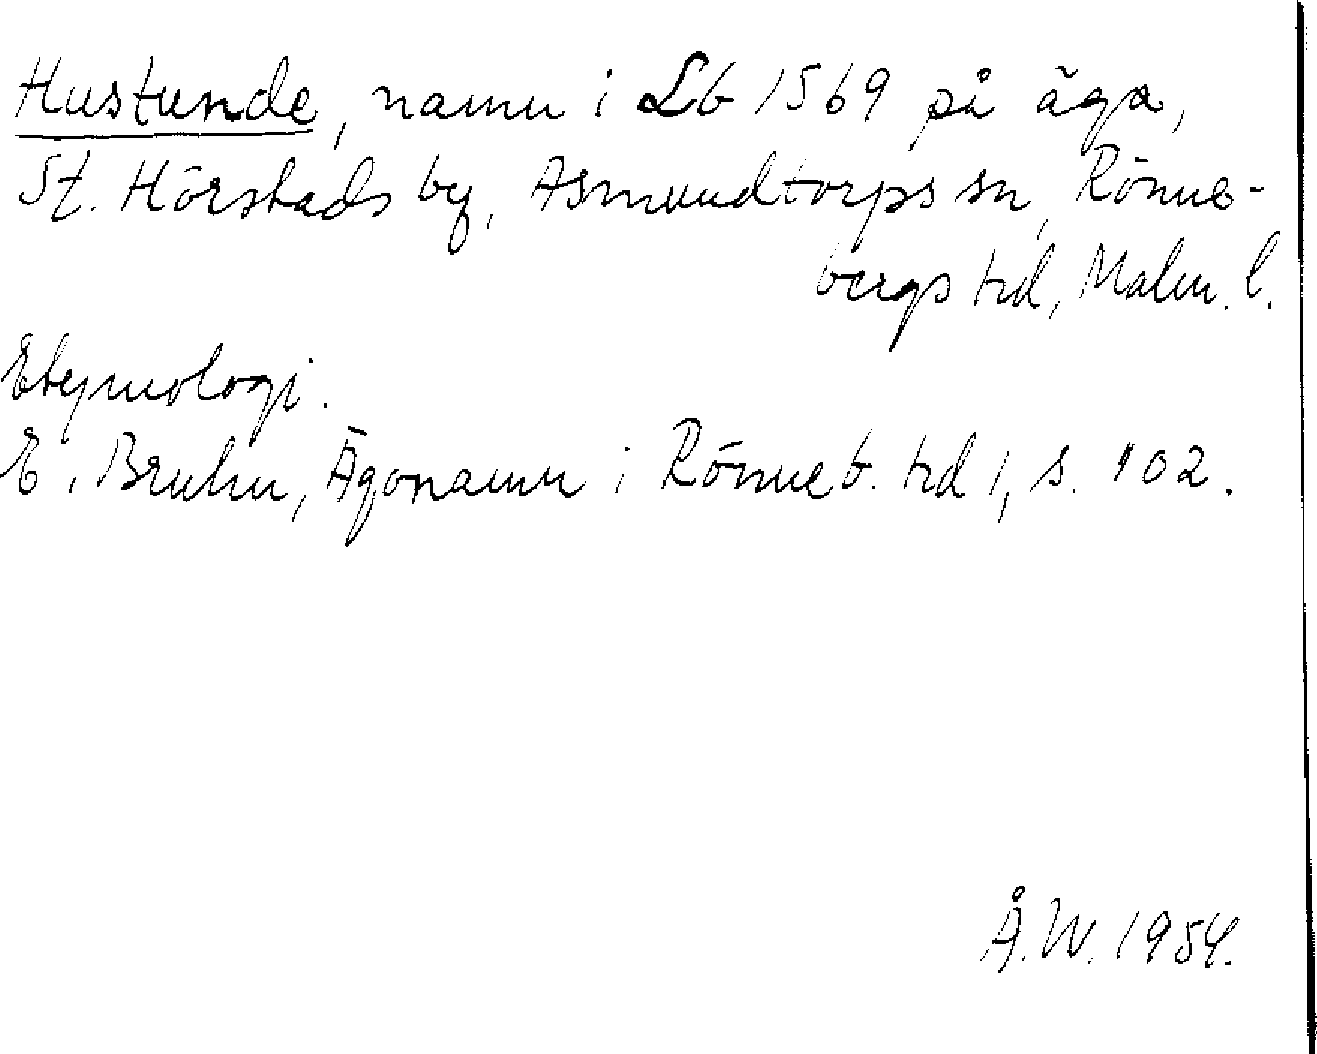 Hustunde, namn i Lb 1569 på äga,
St. Hörstads by, Asmundtorps sn, Rönne-
bergs hd, Malm. l.
Etymologi.
E. Bruhn, Ägonamn i Rönneb. hd 1, s. 102.
Å.W. 1954.